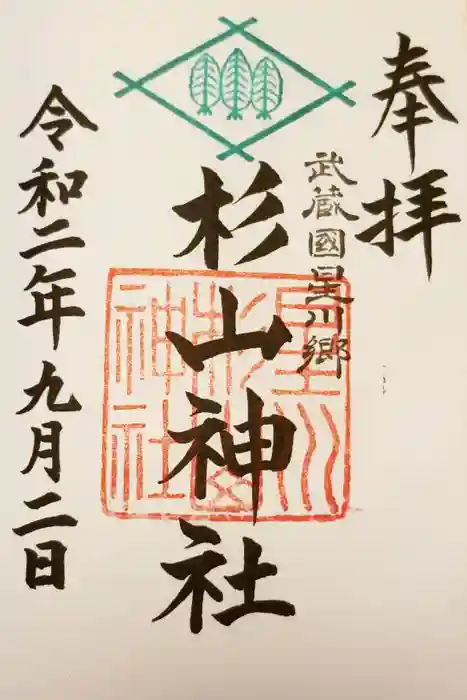 奉拝
武蔵國星川郷
杉山神社
星川
杉山
神社
令和二年九月二日